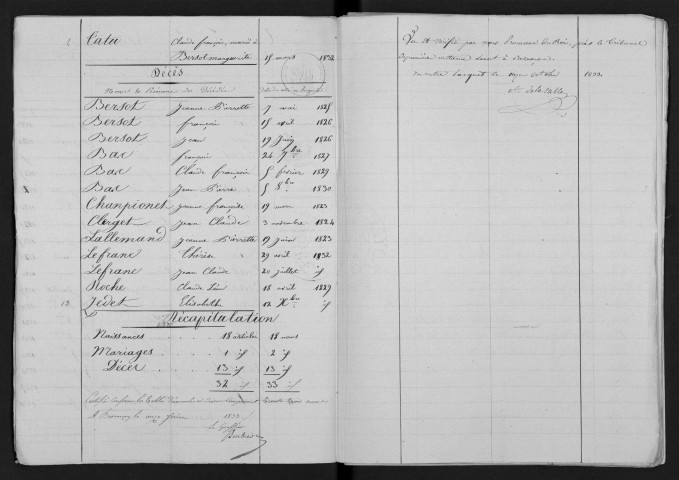 2 Cata Claude françois, marié à
Bersot marguerite 15 mars 1832
Décès
Noms et Prénoms des Décédés
Bersot Jeanne Pierrette 7 mai 1825
Bersot françois 15 avril 1826
Bersot Jean 19 Juin 1826
Bas françois 24 7bre 1827
Bas Claude françois 5 février 1829
Bas Jean Pierre 5 8bre 1830
Chanpionet jeanne françoise 19 mars 1823
Clerget Jean Claude 3 novembre 1824
Lallemand Jeanne Pierrette 19 juin 1823
Lefranc 29 avril 1832
Lefranc Jean Claude 20 juillet id
Roche Claude 18 avril 1829
13 Jedet Elisabeth 12 Xbre id
Récapitulation
Naissances 18 articles 18 noms
Mariages 1 id 2 id
Décès 13 id 13 id
32 id 33 id
1833
Le Greffier
Vu et Vérifié par nous Procureur du Roi, près le Tribunal
de première instance séant à
en notre Parquet le onze 1833